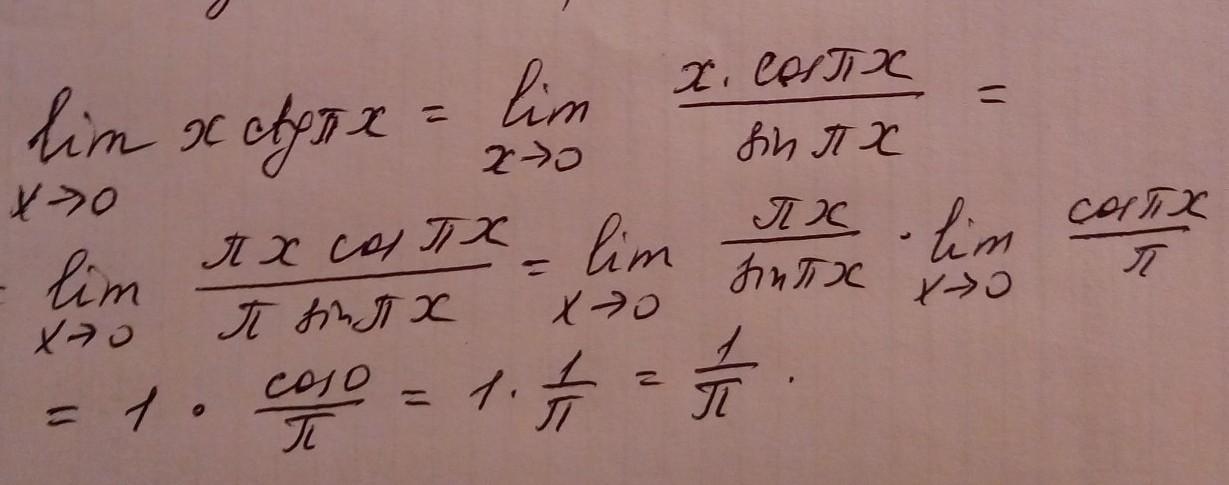 lim x→0 x ctg πx = lim x→0 x · cos πx / sin πx =
= lim x→0 πx cos πx / π sin πx = lim x→0 πx / sin πx · lim x→0 cos πx / π
= 1 · cos 0 / π = 1 · 1/π = 1/π .